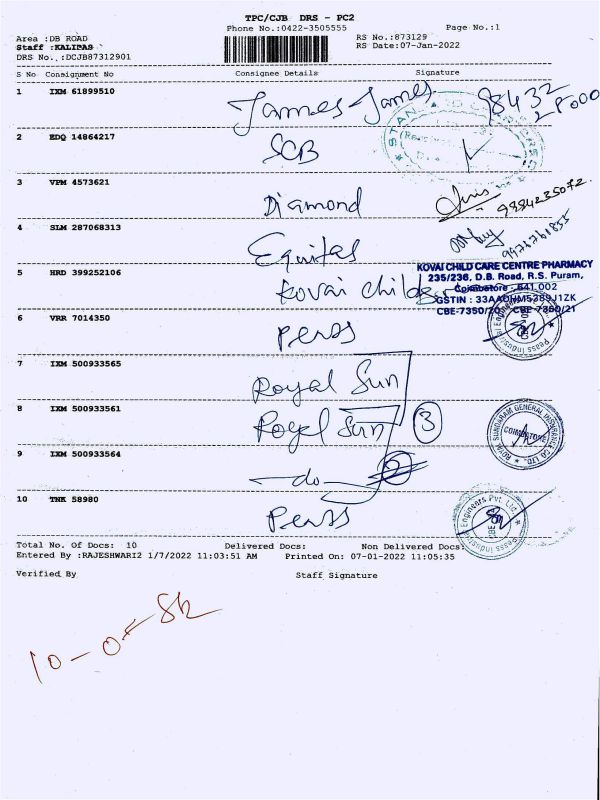 TPC/CJB DRS - PC2
Phone No.:0422-3505555 Page No.:1
Area :DB ROAD RS No.:873129
Staff :KALIDAS RS Date:07-Jan-2022
DRS No.:DCJB87312901
S No Consignment No Consignee Details Signature
1 IXM 61899510 James James 98432
2 EDQ 14864217 SCB
3 VPM 4573621 Diamond 9884235072
4 SLM 287068313 Equitas
KOVAI CHILD CARE CENTRE PHARMACY
235/236, D.B. Road, R.S. Puram,
5 HRD 399252106 Kovai Coimbatore - 641 002
GSTIN :
6 VRR 7014350 Perss
7 IXM 500933565 Royal Sun
8 IXM 500933561 Royal Sun 3
ROYAL SUNDARAM GENERAL INSURANCE CO. LTD.
COIMBATORE
9 IXM 500933564 -do-
10 TNK 58980 Perss
Engineers Pvt. Ltd. Peass Industrial
Total No. Of Docs: 10 Delivered Docs: Non Delivered Docs:
Entered By :RAJESHWARI2 1/7/2022 11:03:51 AM Printed On: 07-01-2022 11:05:35
Verified By Staff Signature